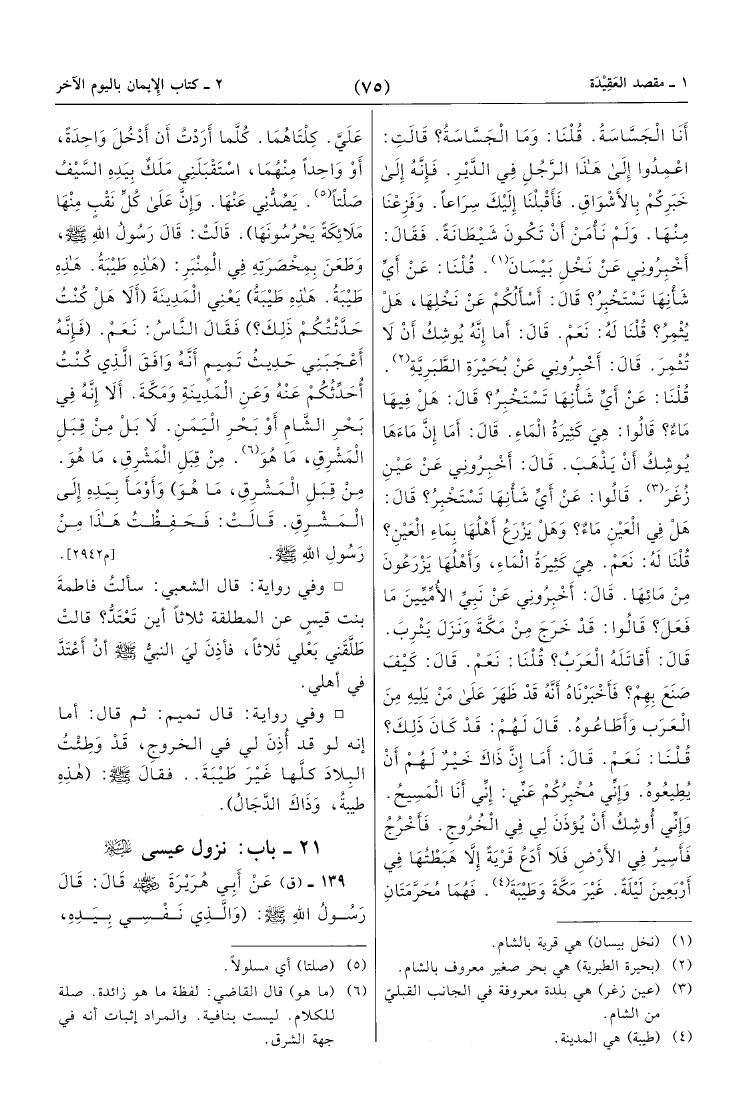 ١ ـ مقصد العَقِيْدَة
(٧٥)
٢ ـ كتاب الإيمان باليوم الآخر
أَنَا الْجَسَّاسَةُ. قُلْنَا: وَمَا الْجَسَّاسَةُ؟ قَالَتِ:
اعْمِدُوا إِلَىٰ هَـٰذَا الرَّجُلِ فِي الدَّيْرِ. فَإِنَّهُ إِلَىٰ
خَبَرِكُمْ بِالأَشْوَاقِ. فَأَقْبَلْنَا إِلَيْكَ سِرَاعاً. وَفَزِعْنَا
مِنْهَا. وَلَمْ نَأْمَنْ أَنْ تَكُونَ شَيْطَانَةً. فَقَالَ:
أَخْبِرُونِي عَنْ نَخْلِ بَيْسَانَ(١). قُلْنَا: عَنْ أَيِّ
شَأْنِهَا تَسْتَخْبِرُ؟ قَالَ: أَسْأَلُكُمْ عَنْ نَخْلِهَا، هَلْ
يُثْمِرُ؟ قُلْنَا لَهُ: نَعَمْ. قَالَ: أَما إِنَّهُ يُوشِكُ أَنْ لَا
تُثْمِرَ. قَالَ: أَخْبِرُونِي عَنْ بُحَيْرَةِ الطَّبَرِيَّةِ(٢).
قُلْنَا: عَنْ أَيِّ شَأْنِهَا تَسْتَخْبِرُ؟ قَالَ: هَلْ فِيهَا
مَاءٌ؟ قَالُوا: هِيَ كَثِيرَةُ الْمَاءِ. قَالَ: أَمَا إِنَّ مَاءَهَا
يُوشِكُ أَنْ يَذْهَبَ. قَالَ: أَخْبِرُونِي عَنْ عَيْنِ
زُغَرَ(٣). قَالُوا: عَنْ أَيِّ شَأْنِهَا تَسْتَخْبِرُ؟ قَالَ:
هَلْ فِي الْعَيْنِ مَاءٌ؟ وَهَلْ يَزْرَعُ أَهْلُهَا بِمَاءِ الْعَيْنِ؟
قُلْنَا لَهُ: نَعَمْ. هِيَ كَثِيرَةُ الْمَاءِ، وَأَهْلُهَا يَزْرَعُونَ
مِنْ مَائِهَا. قَالَ: أَخْبِرُونِي عَنْ نَبِيِّ الأُمِّيِّينَ مَا
فَعَلَ؟ قَالُوا: قَدْ خَرَجَ مِنْ مَكَّةَ وَنَزَلَ يَثْرِبَ.
قَالَ: أَقاتَلَهُ الْعَرَبُ؟ قُلْنَا: نَعَمْ. قَالَ: كَيْفَ
صَنَعَ بِهِمْ؟ فَأَخْبَرْنَاهُ أَنَّهُ قَدْ ظَهَرَ عَلَىٰ مَنْ يَلِيهِ مِنَ
الْعَرَبِ وَأَطَاعُوهُ. قَالَ لَهُمْ: قَدْ كَانَ ذَلِكَ؟
قُلْنَا: نَعَمْ. قَالَ: أَمَا إِنَّ ذَاكَ خَيْرٌ لَهُمْ أَنْ
يُطِيعُوهُ. وَإِنِّي مُخْبِرُكُمْ عَنِّي: إِنِّي أَنَا الْمَسِيحُ.
وَإِنِّي أُوشِكُ أَنْ يُؤْذَنَ لِي فِي الْخُرُوجِ. فَأَخْرُجُ
فَأَسِيرُ فِي الأَرْضِ فَلَا أَدَعُ قَرْيَةً إِلَّا هَبَطْتُهَا فِي
أَرْبَعِينَ لَيْلَةً. غَيْرَ مَكَّةَ وَطَيْبَةَ(٤). فَهُمَا مُحَرَّمَتَانِ
(١) (نخل بيسان) هي قرية بالشام.
(٢) (بحيرة الطبرية) هي بحر صغير معروف بالشام.
(٣) (عين زغر) هي بلدة معروفة في الجانب القبليّ
من الشام.
(٤) (طيبة) هي المدينة.
عَلَيَّ. كِلْتَاهُمَا. كُلَّما أَرَدْتُ أَن أَدْخُلَ وَاحِدَةً،
أَوْ وَاحِداً مِنْهُمَا، اسْتَقْبَلَنِي مَلَكٌ بِيَدِهِ السَّيْفُ
صَلْتاً(٥). يَصُدُّنِي عَنْهَا. وَإِنَّ عَلَىٰ كُلِّ نَقْبٍ مِنْهَا
مَلَائِكَةً يَحْرُسُونَهَا). قَالَتْ: قَالَ رَسُولُ اللهِ ﷺ،
وَطَعَنَ بِمِخْصَرَتِهِ فِي الْمِنْبَرِ: (هَـٰذِهِ طَيْبَةُ. هَـٰذِهِ
طَيْبَةُ. هَـٰذِهِ طَيْبَةُ) يَعْنِي الْمَدِينَةَ (أَلَا هَلْ كُنْتُ
حَدَّثْتُكُمْ ذَلِكَ؟) فَقَالَ النَّاسُ: نَعَمْ. (فَإِنَّهُ
أَعْجَبَنِي حَدِيثُ تَمِيمٍ أَنَّهُ وَافَقَ الَّذِي كُنْتُ
أُحَدِّثُكُمْ عَنْهُ وَعَنِ الْمَدِينَةِ وَمَكَّةَ. أَلَا إِنَّهُ فِي
بَحْرِ الشَّامِ أَوْ بَحْرِ الْيَمَنِ. لَا بَلْ مِنْ قِبَلِ
الْمَشْرِقِ، مَا هُوَ(٦). مِنْ قِبَلِ الْمَشْرِقِ، مَا هُوَ.
مِنْ قِبَلِ الْمَشْرِقِ، مَا هُوَ) وَأَوْمَأَ بِيَدِهِ إِلَى
الْمَشْرِقِ. قَالَتْ: فَحَفِظْتُ هَـٰذَا مِنْ
رَسُولِ اللهِ ﷺ. [م٢٩٤٢].
□ وفي رواية: قال الشعبي: سألتُ فاطمةَ
بنت قيسٍ عن المطلقة ثلاثاً أين تَعْتَدُّ؟ قالتْ
طَلَّقَني بَعْلي ثَلاثاً، فأذِنَ ليَ النبيُّ ﷺ أنْ أعْتَدَّ
في أهلي.
□ وفي رواية: قال تميم: ثم قال: أما
إنه لو قد أُذِنَ لي في الخروجِ، قَدْ وَطِئْتُ
البِلادَ كلَّها غَيْرَ طَيْبَةَ.. فقالَ ﷺ: (هٰذِهِ
طيبةُ، وَذَاكَ الدَّجالُ).
٢١ ـ باب: نزول عيسى عليه السلام
١٣٩ ـ (ق) عَنْ أَبِي هُرَيْرَةَ رضي الله عنه قَالَ: قَالَ
رَسُولُ اللهِ ﷺ: (وَالَّذِي نَفْسِي بِيَدِهِ،
(٥) (صلتا) أي مسلولاً.
(٦) (ما هو) قال القاضي: لفظة ما هو زائدة. صلة
للكلام. ليست بنافية. والمراد إثبات أنه في
جهة الشرق.